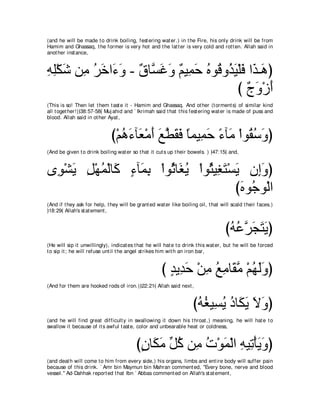 (and he will be made to drink boiling, festering water.) in the Fire, his only drink will be from
Hamim and Ghassaq, the former is very hot and the latter is very cold and rotten. Allah said in
another instance,
هَـذَا فَلْيَذُوقُوهُ حَمِيمٌ وَغَسَّاقٌ - وَءَاخَرُ مِن شَكْلِهِ
أَزْوَجٌ
(This is so! Then let them taste it - Hamim and Ghassaq. And other (torments) of similar kind
all together!)(38:57-58) Mujahid and `Ikrimah said that this festering water is made of puss and
blood. Allah said in other Ayat,
وَسُقُواْ مَآءً حَمِيماً فَقَطَّعَ أَمْعَآءَهُمْ
(And be given to drink boiling water so that it cuts up their bowels. ) )47:15( and,
وَإِن يَسْتَغِيثُواْ يُغَاثُواْ بِمَآءٍ كَالْمُهْلِ يَشْوِى
الْوجُوهَ
(And if they ask for help, they will be granted water like boiling oil, that will scald their faces.)
)18:29( Allah's statement,
يَتَجَرَّعُهُ
(He will sip it unwillingly), indicates that he will hate to drink this water, but he will be forced
to sip it; he will refuse until the angel strikes him with an iron bar,
وَلَهُمْ مَّقَامِعُ مِنْ حَدِيدٍ
(And for them are hooked rods of iron.))22:21( Allah said next,
وَلاَ يَكَادُ يُسِيغُهُ
(and he will find great difficulty in swallowing it down his throat,) meaning, he will hate to
swallow it because of its awful taste, color and unbearable heat or coldness,
وَيَأْتِيهِ الْمَوْتُ مِن كُلِّ مَكَانٍ
(and death will come to him from every side,) his organs, limbs and entire body will suffer pain
because of this drink. `Amr bin Maymun bin Mahran commented, "Every bone, nerve and blood
vessel.'' Ad-Dahhak reported that Ibn `Abbas commented on Allah's statement,